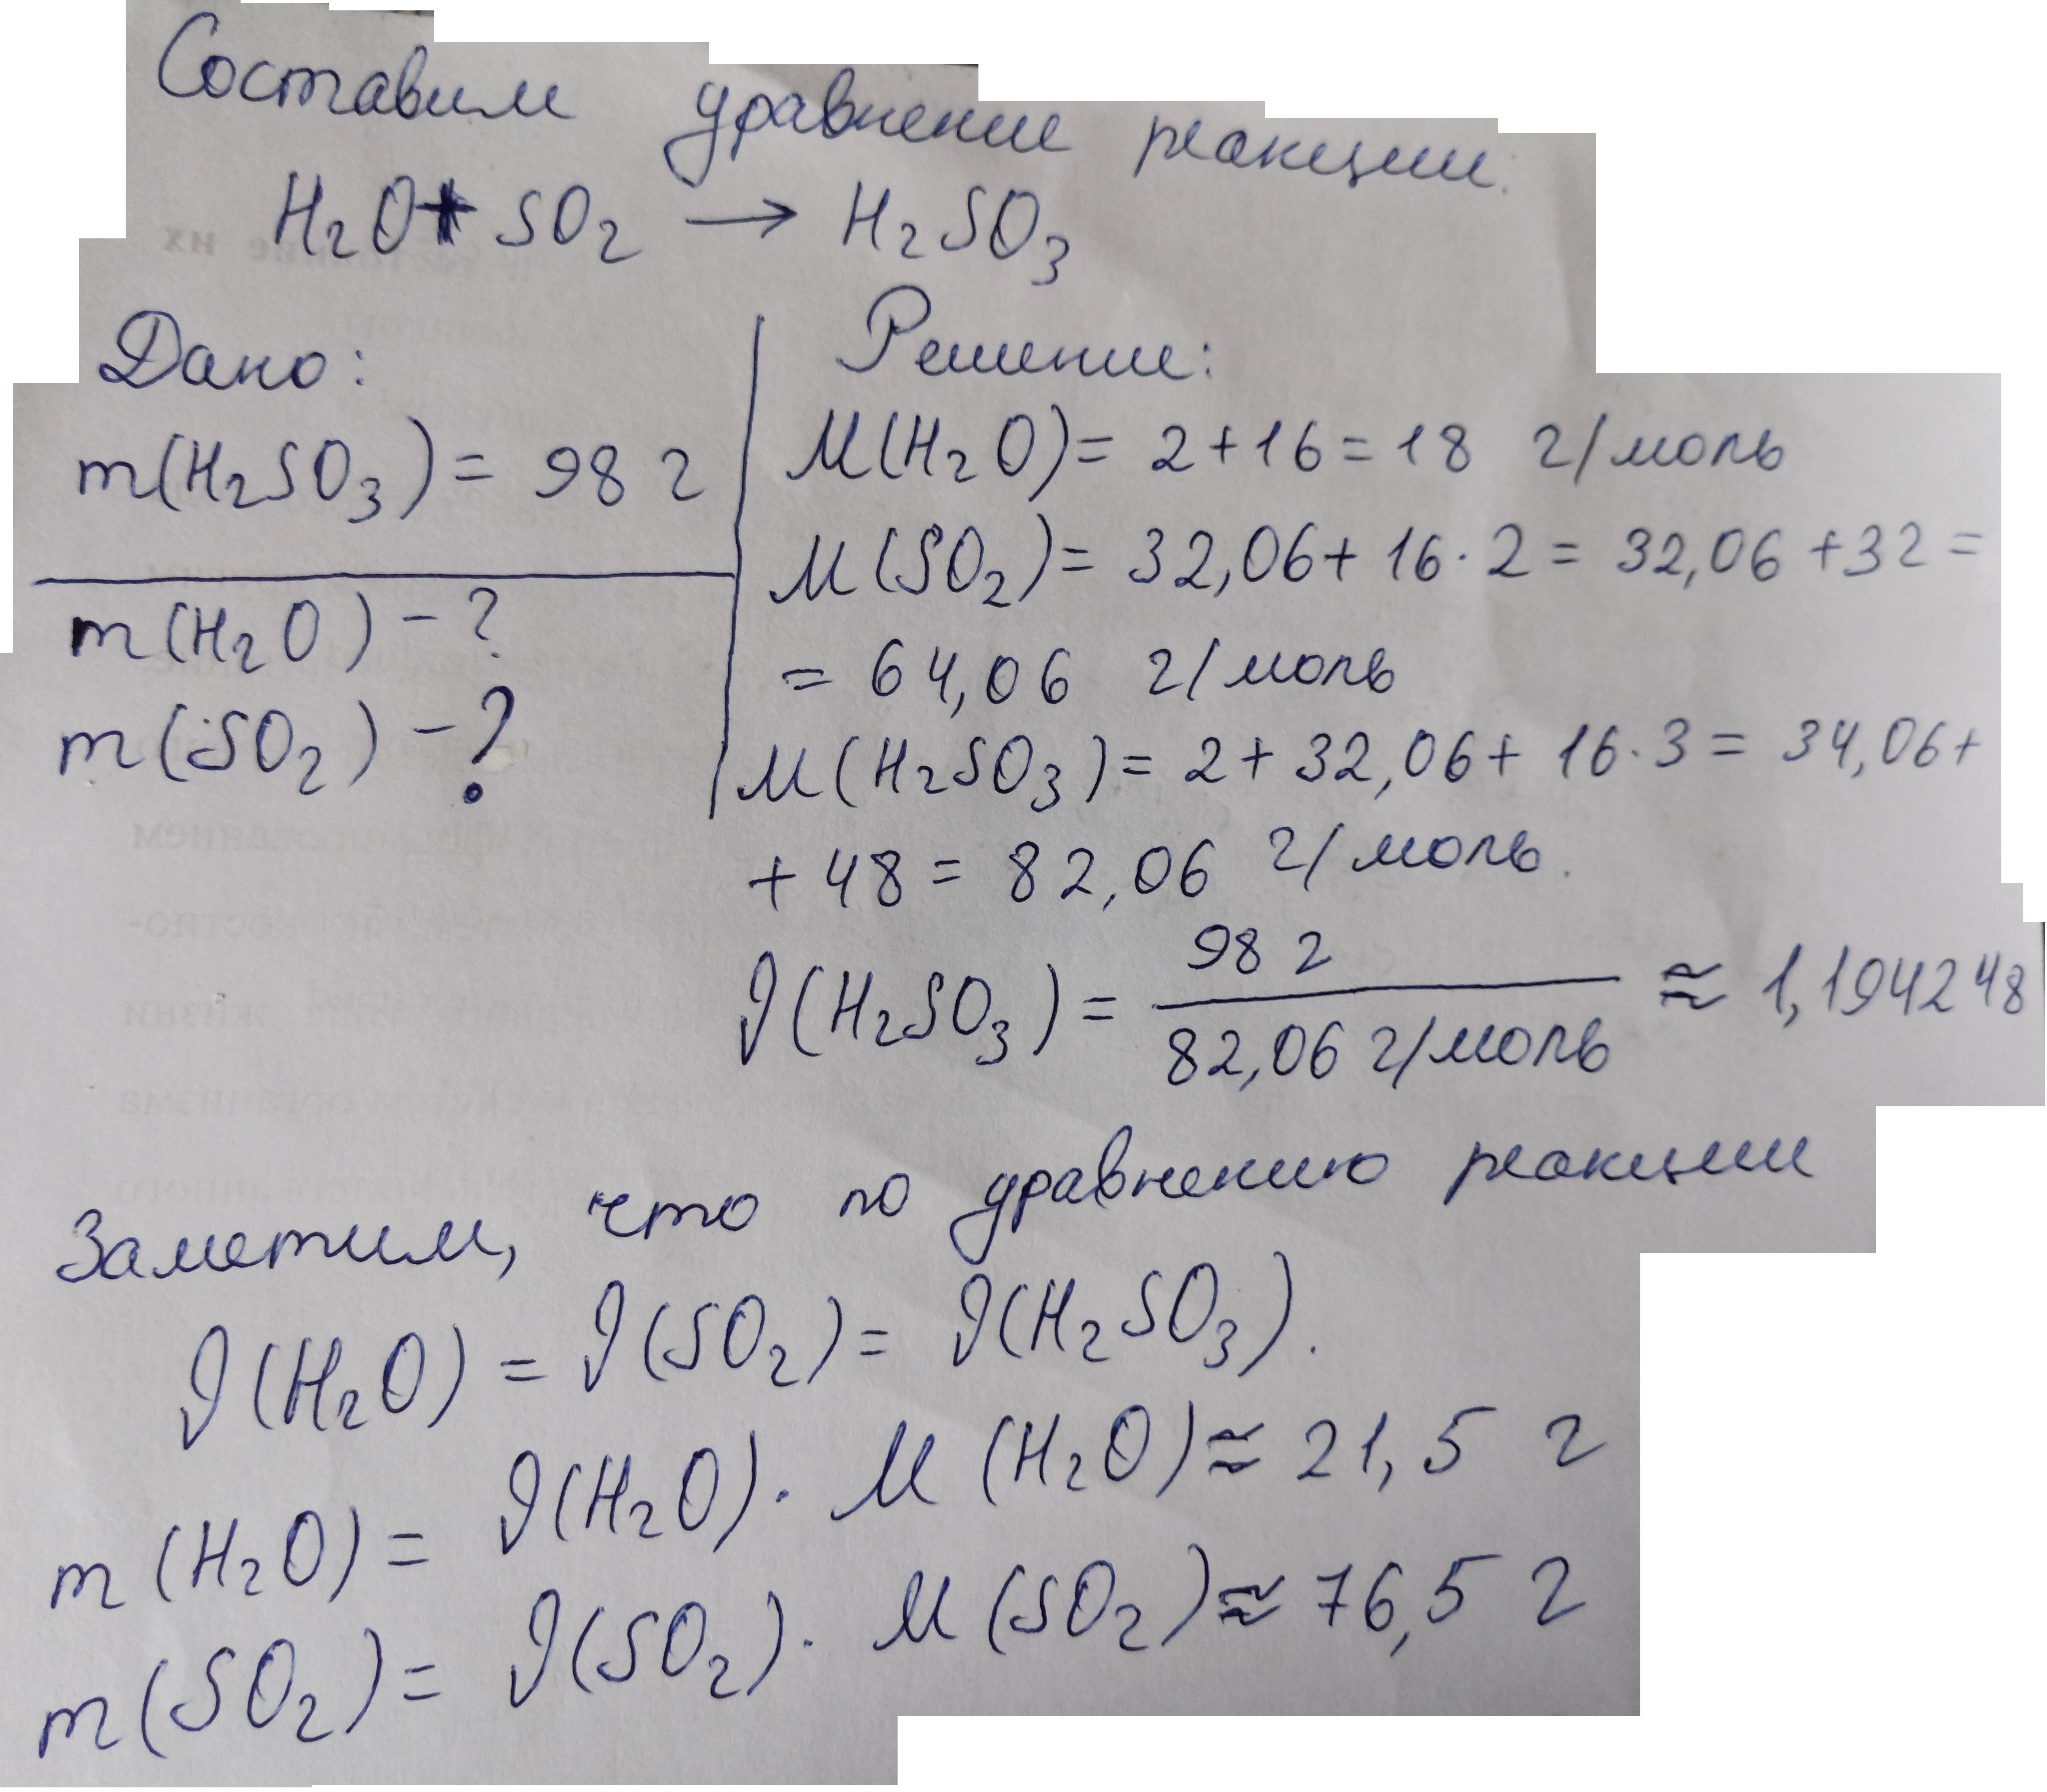 Составим уравнение реакции:
H₂O + SO₂ → H₂SO₃
Дано:
m(H₂SO₃) = 98 г
m(H₂O) - ?
m(SO₂) - ?
Решение:
M(H₂O) = 2+16 = 18 г/моль
M(SO₂) = 32,06 + 16·2 = 32,06 + 32 =
= 64,06 г/моль
M(H₂SO₃) = 2 + 32,06 + 16·3 = 34,06 +
+ 48 = 82,06 г/моль.
ν(H₂SO₃) = 98 г / 82,06 г/моль ≈ 1,194248
Заметим, что по уравнению реакции
ν(H₂O) = ν(SO₂) = ν(H₂SO₃).
m(H₂O) = ν(H₂O) · M(H₂O) ≈ 21,5 г
m(SO₂) = ν(SO₂) · M(SO₂) ≈ 76,5 г